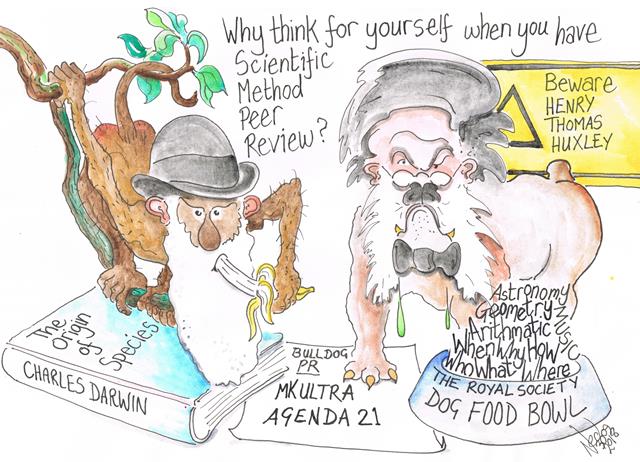 Why think for yourself when you have
Scientific
Method
Peer
Review?
Beware
HENRY
THOMAS
HUXLEY
The
Origin
of
Species
CHARLES DARWIN
BULLDOG
PR
MK ULTRA
AGENDA 21
Astronomy
Geometry
Arithmatic
When Why How
Who What Where
MUSIC
THE ROYAL SOCIETY
DOG FOOD BOWL